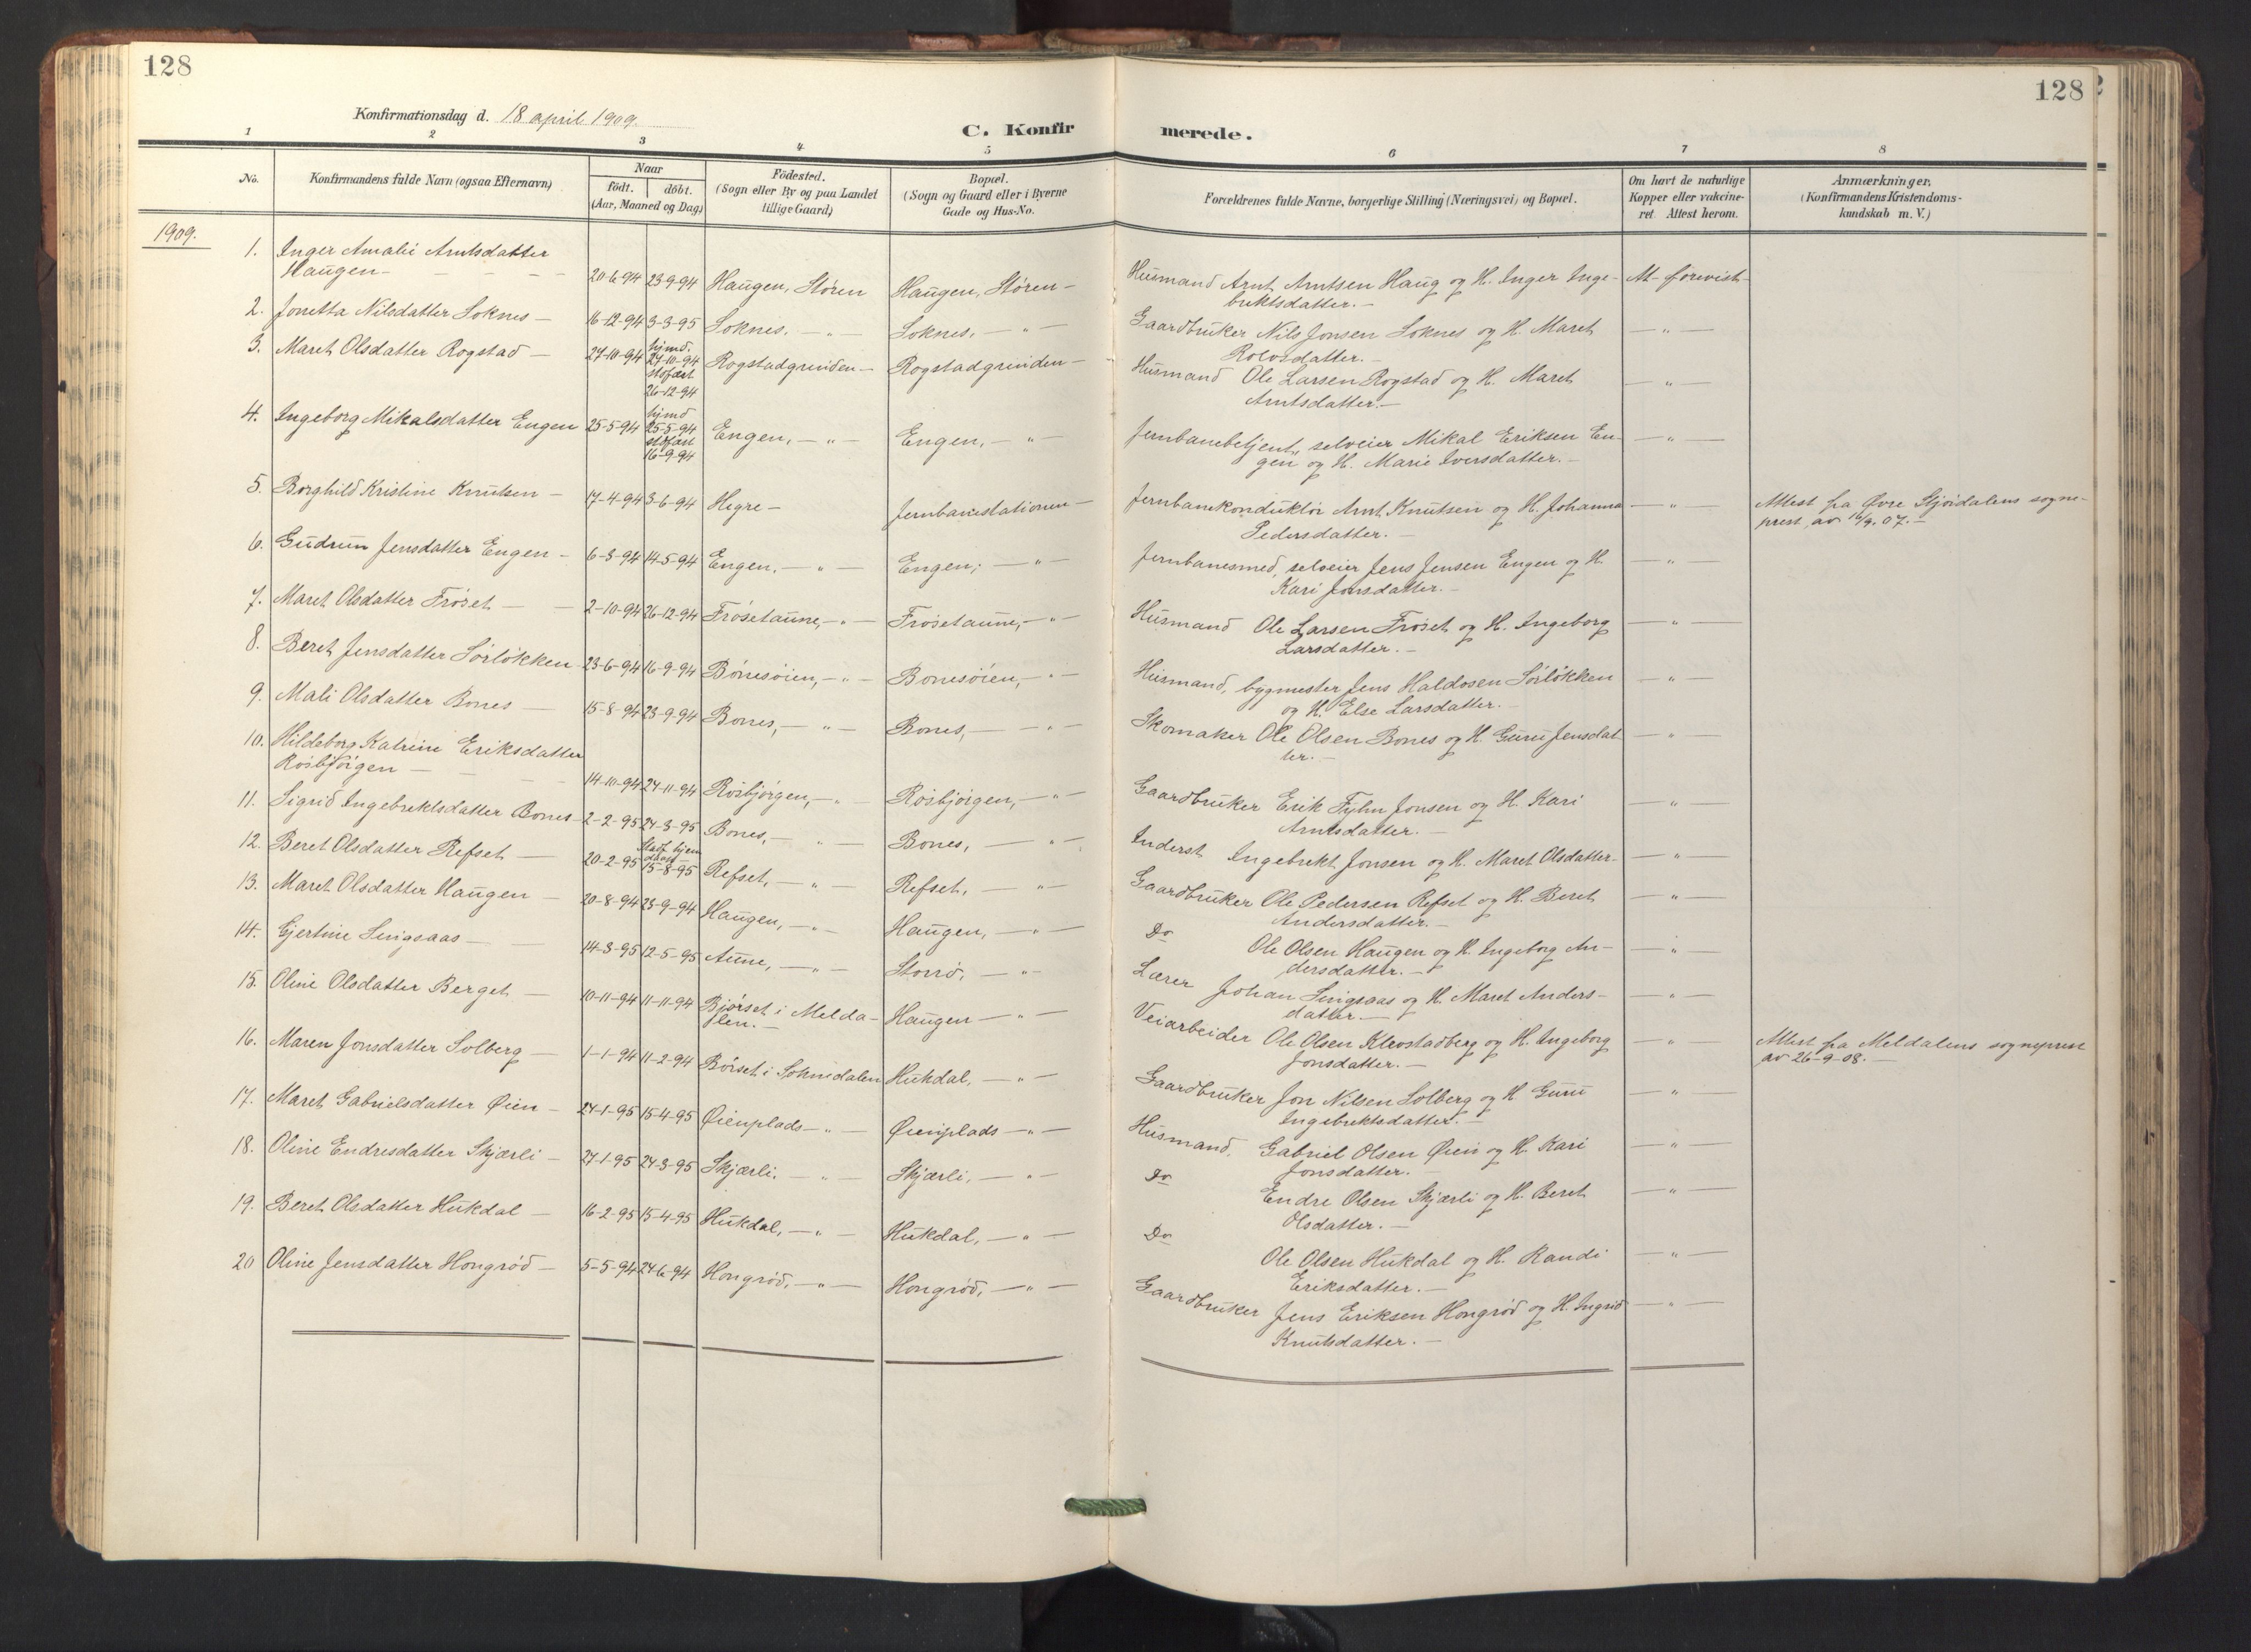 128
128
Konfirmationsdag d. 18 april 1909.
C. Konfir merede.
1 2 3 4 5 6 7 8
No.
Konfirmandens fulde Navn (ogsaa Efternavn)
Naar
födt. döbt.
(Aar, Maaned og Dag)
Födested.
(Sogn eller By og paa Landet
tillige Gaard)
Bopæl.
(Sogn og Gaard eller i Byerne
Gade og Hus-No.
Forældrenes fulde Navne, borgerlige Stilling (Næringsvei) og Bopæl.
Om havt de naturlige
Kopper eller vakcine-
ret. Attest herom.
Anmærkninger,
(Konfirmandens Kristendoms-
kundskab m. V.)
1909.
1. Inger Amalie Arntsdatter
Haugen - 20-6-94 23-9-94 Haugen, Støren Haugen, Støren - Husmand Arnt Arntsen Haug og H. Inger Inge- At- forevist-
brektsdatter. -
2. Jonetta Nilsdatter Soknes - 16-12-94 3-3-95 Soknes. - " - Soknes, - " - Gaardbruker Nils Jonsen Soknes og H. Maret - " -
Rolosdatter. -
3. Maret Olsdatter Rogstad - 27-10-94 hjmd. 27-10-94 stadfæst 26-12-94 Rogstadgrinden - Rogstadgrinden - Husmand Ole Larsen Rogstad og H. Maret - " -
Arntsdatter. -
4. Ingeborg Mikalsdatter Engen 25-5-94 hjmd 25-5-94 stdfæst 16-9-94 Engen, - " - Engen, - " - Jernbanebetjent, selveier Mikal Eriksen En- - " -
gen og H. Marie Iversdatter. -
5. Borghild Kristine Knutsen - 17-4-94 3-6-94 Hegre - Jernbanestationen - Jernbanekonduktör Arnt Knutsen og H. Johanna - " - Attest fra Øvre Stjördalens sogne-
Pedersdatter. - prest av 16/9. 07. -
6. Gudrun Jensdatter Engen - 6-3-94 14-5-94 Engen, - " - Engen; - " - Jernbanesmed, selveier Jens Jensen Engen og H. - " -
Kari Jonsdatter. -
7. Maret Olsdatter Fröset - 2-10-94 26-12-94 Frösetaune, - " - Frösetaune, - " - Husmand Ole Larsen Fröset og H. Ingeborg - " -
Larsdatter. -
8. Beret Jensdatter Sörlökken 23-6-94 16-9-94 Bónesöien, - " - Bonesöien, - " - Husmand, bygmester Jens Haldosen Sörlökken - " -
og H. Else Larsdatter. -
9. Mali Olsdatter Bones - 15-8-94 23-9-94 Bones, - " - Bones, - " - Skomaker Ole Olsen Bones og H. Guru Jensdat - " -
ter. -
10. Hildeborg Katrine Eriksdatter
Rosbjörgen - 14-10-94 24-11-94 Rösbjörgen, - " - Rösbjörgen, - " - Gaardbruker Erik Fyhn Jonsen og H. Kari - " -
Arntsdatter. -
11. Sigrid Ingebrektsdatter Bones - 2-2-95 24-3-95 Bones, - " - Bones, - " - Inderst Ingebrekt Jonsen og H. Maret Olsdatter - " -
12. Beret Olsdatter Refset - 20-2-95 15-8-95 Refset, - " - Refset, - " - Gaardbruker Ole Pedersen Refset og H. Beret - " -
Andersdatter. -
13. Maret Olsdatter Haugen - 20-8-94 23-9-94 Haugen, - " - Haugen, - " - Do Ole Olsen Haugen og H. Ingeborg An- - " -
dersdatter. -
14. Gjertine Singsaas - 14-3-95 12-5-95 Aune, - " - Storrö, - " - Lærer Johan Singsaas og H. Maret Anders- - " -
datter. -
15. Oline Olsdatter Berget - 10-11-94 11-11-94 Bjórset i Melda- Haugen - " - Veiarbeider Ole Olsen Klevstadberg og H. Ingeborg - " - Attest fra Meldalens sogneprest
len. - Jonsdatter. - av 26-9-08. -
16. Maren Jonsdatter Solberg - 1-1-94 11-2-94 Börset i Soknedalen Hukdal, - " - Gaardbruker Jon Nilsen Solberg og H Guru - " -
Ingebrektsdatter. -
17. Maret Gabrielsdatter Øien - 27-1-95 15-4-95 Øienplads - " - Øienplads - " - Husmand, Gabriel Olsen Øien og H. Kari - " -
Jonsdatter. -
18. Oline Endresdatter Skjærli - 27-1-95 24-3-95 Skjærli. - " - Skjærli, - " - Do Endre Olsen Skjærli og H. Beret - " -
Olsdatter. -
19. Beret Olsdatter Hukdal - 16-2-95 15-4-95 Hukdal, - " - Hukdal, - " - Do Ole Olsen Hukdal og H. Randi - " -
Eriksdatter. -
20 Oline Jensdatter Hongröd - 5-5-94 24-6-94 Hongröd, - " - Hongröd, - " - Gaardbruker Jens Eriksen Hongröd og H. Ingrid - " -
Knutsdatter. -